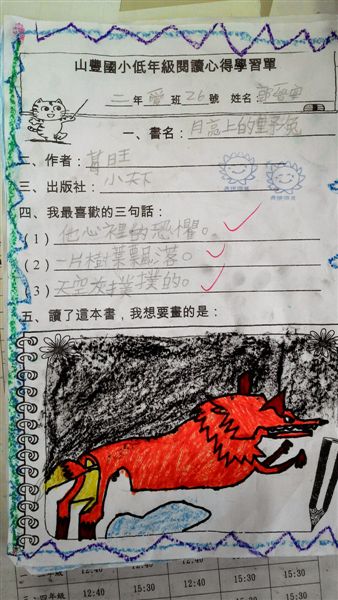 山豐國小低年級閱讀心得學習單
二年 愛 班 26 號 姓名
一、書名：月亮上的野兔
二、作者：葛旺
三、出版社：小天下
四、我最喜歡的三句話：
(1) 他心裡的恐懼。
(2) 一片樹葉飄落。
(3) 天空灰撲撲的。
五、讀了這本書，我想要畫的是：
12:40 12:40
15:30 12:40 15:30 15:30
三、四年級